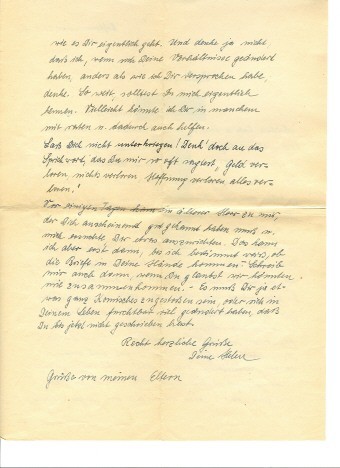 wie es Dir eigentlich geht. Und denke ja nicht
dass ich, wenn sich Deine Verhältnisse geändert
haben, anders als wie ich Dir versprochen habe,
denke. So weit solltest Du mich eigentlich
kennen. Vielleicht könnte ich Dir in manchem
mit raten u. dadurch auch helfen.
Laß Dich nicht unterkriegen! Denk' doch an das
Sprichwort, das Du mir so oft sagtest, "Geld ver-
loren nichts verloren Hoffnung verloren alles ver-
loren!"
Vor einigen Tagen kam ein älterer Herr zu mir,
der Dich anscheinend gut gekannt haben muß u.
mich ersuchte, Dir etwas auszurichten. Das kann
ich aber erst dann, bis ich bestimmt weiß, ob
die Briefe in Deine Hände kommen. Schreib
mir auch dann, wenn Du glaubst wir könnten
nie zusammenkommen. - Es muß Dir ja et-
was ganz Komisches zugestoßen sein, oder sich in
Deinem Leben furchtbar viel geändert haben, daß
Du bis jetzt nicht geschrieben hast.
Recht herzliche Grüße
Deine
Grüße von meinen Eltern